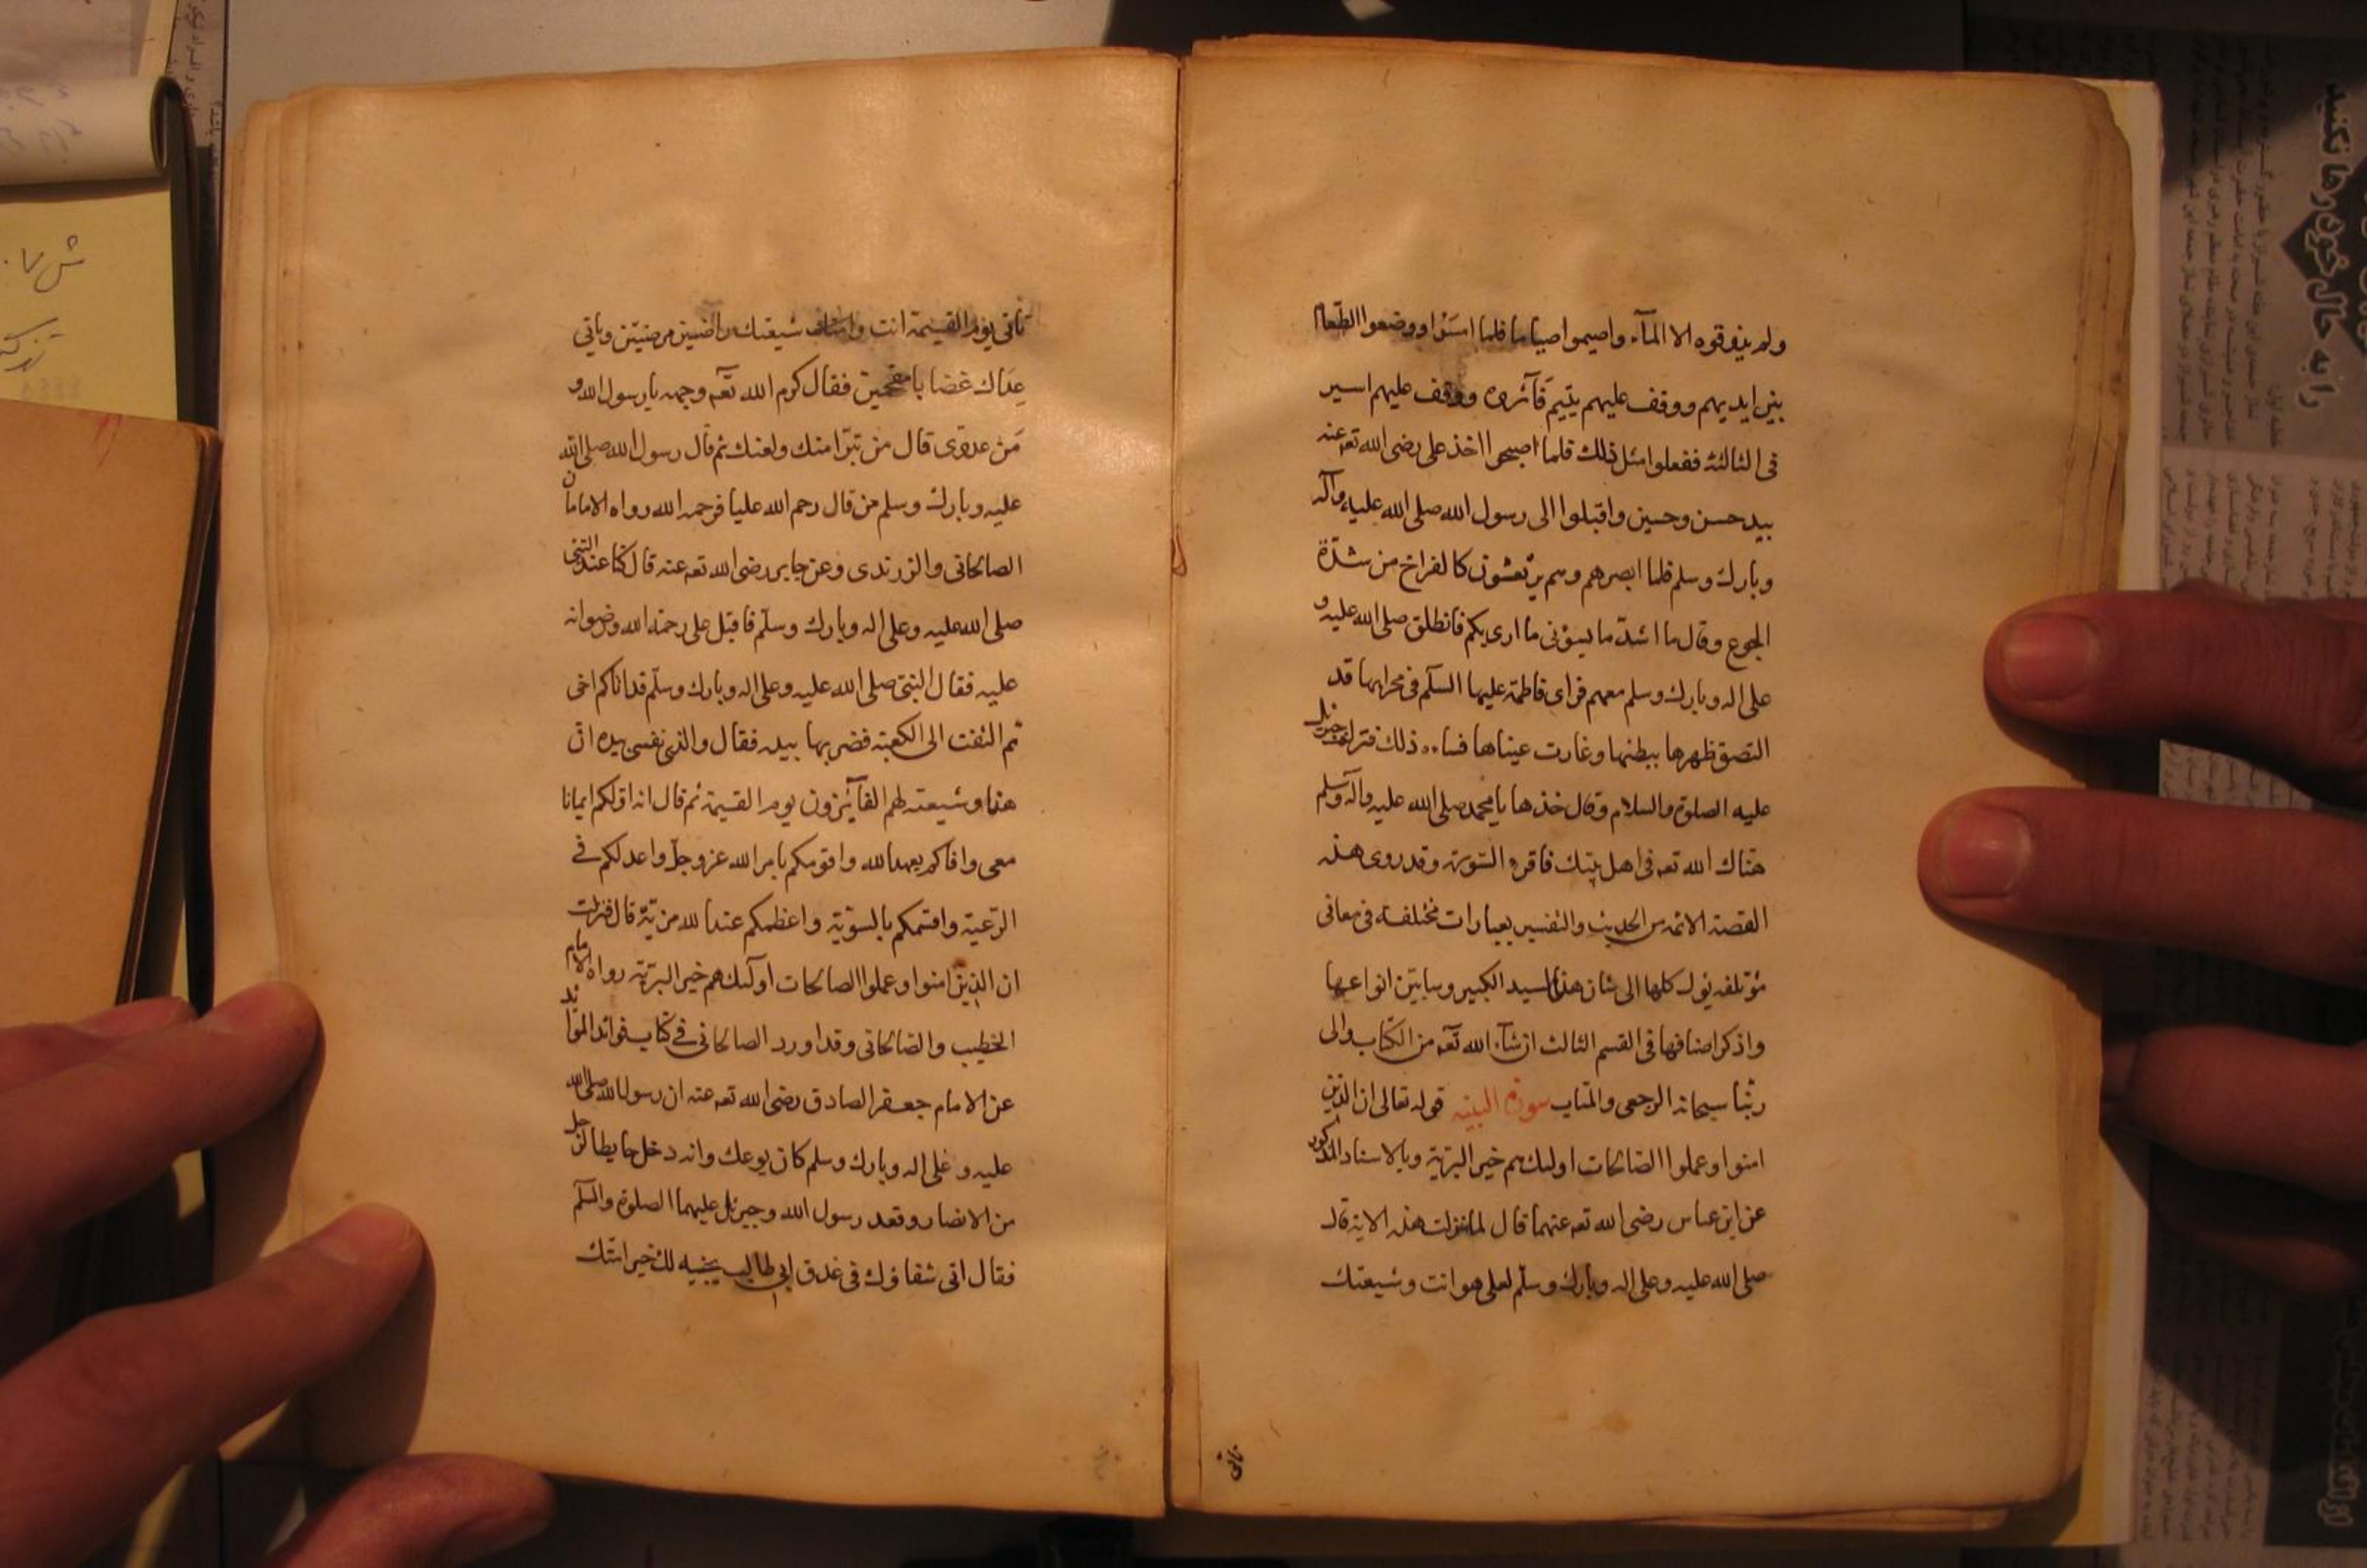 ولم يذوقوه الا المآء واصبحوا صياما فلما امسَوْا ووضعوا الطّعام
بين ايديهم ووقف عليهم يتيم فَآثروه ووقف عليهم اسير
فى الثالثة ففعلوا مثل ذلك فلما اصبحوا اخذ على رضى الله تعه عنه
بيد حسن وحسين واقبلوا الى رسول الله صلى الله عليه وآله
وبارك وسلم فلما ابصرهم وهم يرتعشون كالفراخ من شدّة
الجوع وقال ما اشدّ ما يسؤنى ما ارى بكم فانطلق صلى الله عليه و
على اله وبارك وسلم معهم فراى فاطمة عليها السلم فى محرابها قد
التصق ظهرها ببطنها وغارت عيناها فساءه ذلك فنزل جبرئيل
عليه الصلوة والسلام وقال خذها يا محمد صلى الله عليه وآله وسلم
هنّاك الله تعه فى اهل بيتك فاقرء السّورة وقد روى هذه
القصة الائمه من الحديث والتفسير بعبارات مختلفة فى معانى
مؤتلفه يؤل كلها الى شان هذا السيد الكبير وسابيّن انواعها
واذكر اصنافها فى القسم الثالث ان شآء الله تعه من الكتاب والى
ربّنا سبحانه الرجعى والمتاب سورة البينه قوله تعالى ان الذين
امنوا وعملوا الصّالحات اولئك هم خير البريّة وبالاسناد المذكور
عن ابن عباس رضى الله تعه عنهما قال لما نزلت هذه الاية قال
صلى الله عليه وعلى اله وبارك وسلّم لعلى هو انت وشيعتك
تاتى
تاتى يوم القيمة انت وشيعتك راضين مرضيّين وياتى
عدّاك غضابا مقمحين فقال كرم الله تعه وجهه يا رسول الله و
مَن عدوّى قال من تبرّا منك ولعنك ثم قال رسول الله صلى الله
عليه وبارك وسلم من قال رحم الله عليا فرحمه الله رواه الامامان
الصالحانى والزرندى وعن جابر رضى الله تعه عنه قال كنّا عند النّبى
صلى الله عليه وعلى اله وبارك وسلّم فاقبل على رحمة الله ورضوانه
عليه فقال النبىّ صلى الله عليه وعلى اله وبارك وسلّم قد اتاكم اخى
ثم التفت الى الكعبة فضربها بيده فقال والذى نفسى بيده انّ
هذا وشيعته لهم الفآئزون يوم القيمة ثم قال انه اوّلكم ايمانا
معى واوفاكم بعهد الله واقومكم بامر الله عز وجلّ واعدلكم فى
الرّعية واقسمكم بالسويّة واعظمكم عند الله مزيّة قال فنزلت
ان الذين امنوا وعملوا الصالحات اولئك هم خير البريّة رواه الامام
الخطيب والصّالحانى وقد اورد الصالحانى فى كتاب فوائد الموايد
عن الامام جعفر الصادق رضى الله تعه عنه ان رسول الله صلى الله
عليه وعلى اله وبارك وسلم كان يوعك وانه دخل حايطا لرجل
من الانصار وقعد رسول الله وجبرئيل عليهما الصلوة والسلم
فقال اتى شفاؤك فى عذق ابى طالب يجنيه لك خير امّتك